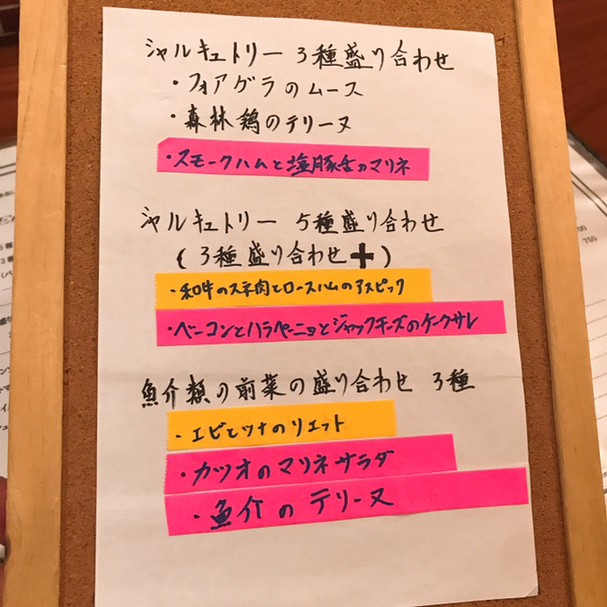 シャルキュトリー 3種盛り合わせ
・フォアグラのムース
・森林鶏のテリーヌ
・スモークハムと塩豚舌のマリネ
シャルキュトリー 5種盛り合わせ
(3種盛り合わせ+)
・和牛のスネ肉とロースハムのアスピック
・ベーコンとハラペーニョとジャックチーズのケークサレ
魚介類の前菜の盛り合わせ 3種
・エビとツナのリエット
・カツオのマリネサラダ
・魚介のテリーヌ